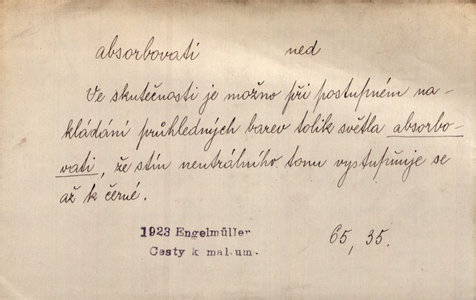 absorbovati ned
Ve skutečnosti je možno při postupném na-
kládání průhledných barev tolik světla absorbo-
vati, že stín neutrálního tonu vystupňuje se
až k černé.
1923 Engelmüller
Cesty k mal.um.
65, 35.